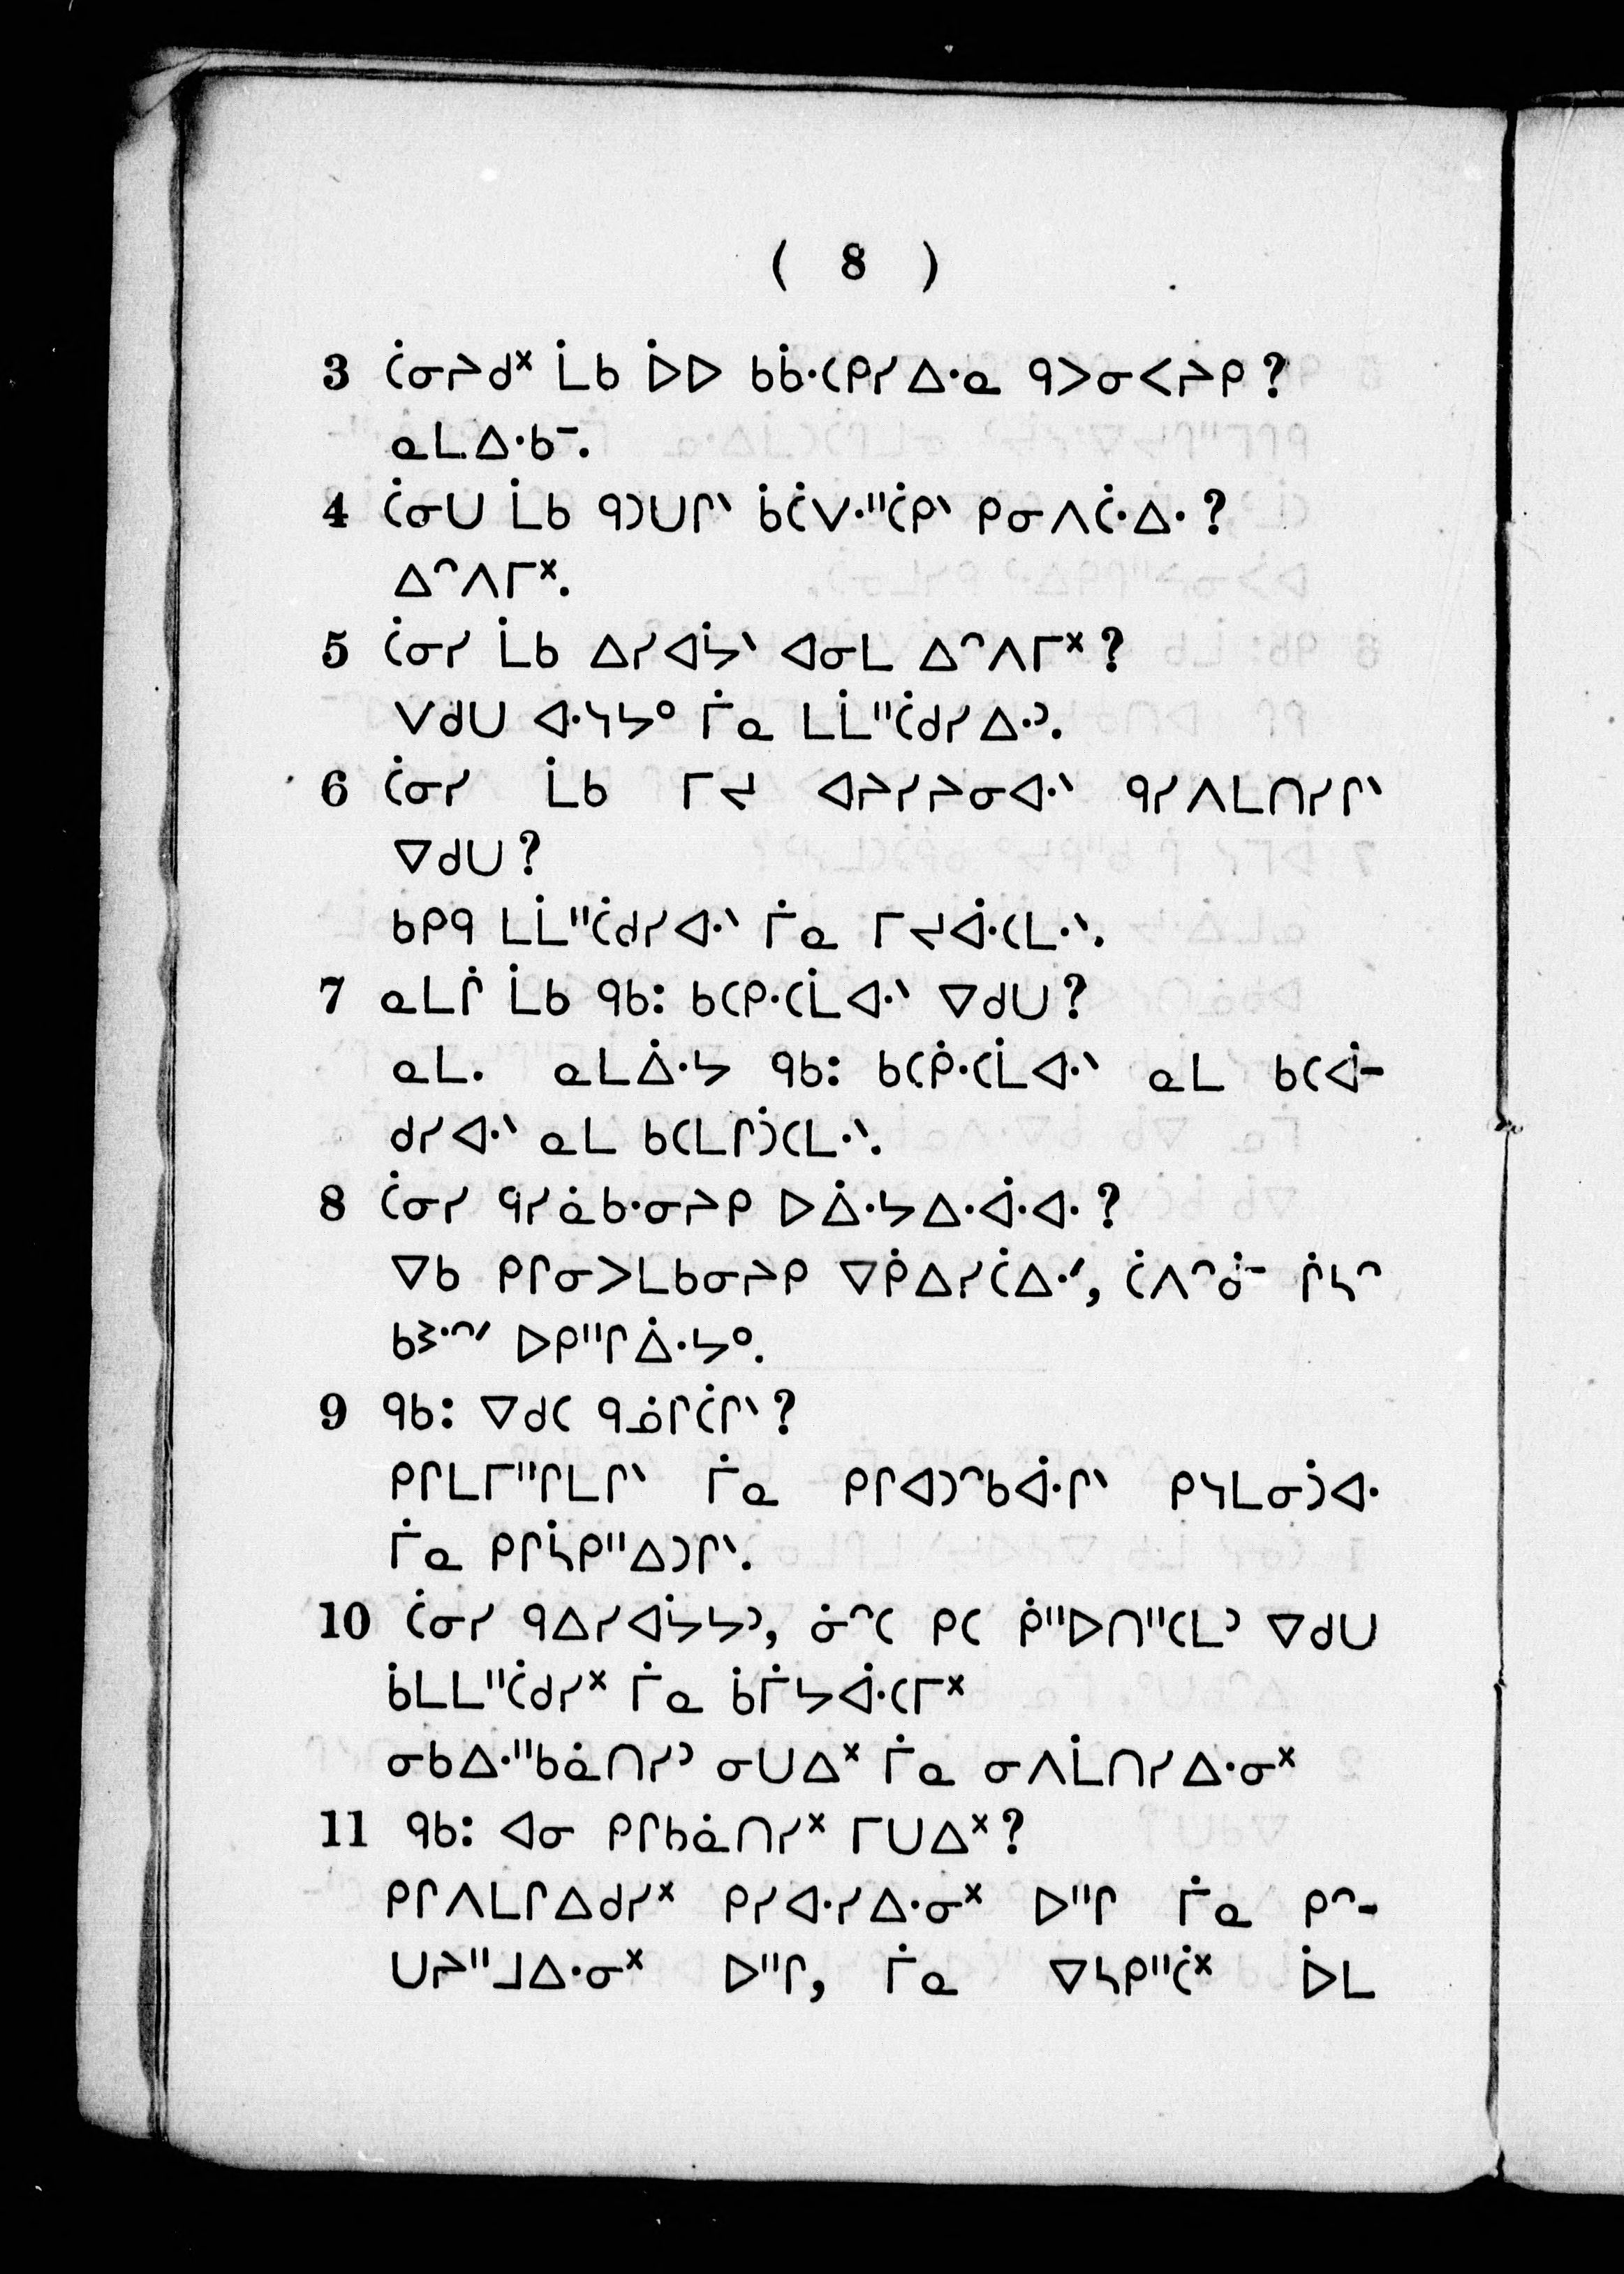 ( 8 )
3 ᑖᓂᔨᑯᕽ ᒫᑲ ᐆᐅ ᑲᑳᐧᑕᑭᓯᐃᐧᓇ ᑫᐳᓂᐸᔨᑭ ?
ᓇᒪᐃᐧᑲᐨ.
4 ᑖᓂᑌ ᒫᑲ ᑫᑐᑌᒋᐠ ᑳᑖᐯᐧᐦᑖᑭᐠ ᑭᓂᐱᑖᐧᐃᐧ ?
ᐃᐢᐱᒥᕽ.
5 ᑖᓂᓯ ᒫᑲ ᐃᓯᐊᔮᐠ ᐊᓂᒪ ᐃᐢᐱᒥᕽ ?
ᐯᑯᑌ ᐊᐧᓭᔭᐤ ᒦᓇ ᒪᒫᐦᑖᑯᓯᐃᐧᐣ.
6 ᑖᓂᓯ ᒫᑲ ᒥᔪ ᐊᔨᓯᔨᓂᐊᐧᐠ ᑫᓯᐱᒪᑎᓯᒋᐠ
ᐁᑯᑌ ?
ᑲᑭᑫ ᒪᒫᐦᑖᑯᓯᐊᐧᐠ ᒦᓇ ᒥᔪᐋᐧᑕᒪᐧᐠ.
7 ᓇᒪᒌ ᒫᑲ ᑫᑲ: ᑲᑕᑭᐧᑕᒫᐊᐧᐠ ᐁᑯᑌ ?
ᓇᒪ. ᓇᒪᐄᐧᔭ ᑫᑲ: ᑲᑕᑮᐧᑕᒫᐊᐧᐠ ᓇᒪ ᑲᑕᐋ-
ᑯᓯᐊᐧᐠ ᓇᒪ ᑲᑕᒪᒋᑑᑕᒪᐧᐠ.
8 ᑖᓂᓯ ᑫᓯᓈᑲᐧᓂᔨᑭ ᐅᐄᐧᔭᐃᐧᐋᐧᐊᐧ ?
ᐁᑲ ᑭᒋᓂᐳᒪᑲᓂᔨᑭ ᐁᑮᐃᓯᑖᐃᐧᐟ, ᑖᐱᐢᑰᐨ ᒌᓴᐢ
ᑲᕒᐧᐢᐟ ᐅᑭᐦᒋᐄᐧᔭᐤ.
9 ᑫᑲ: ᐁᑯᑕ ᑫᓅᒋᑖᒋᐠ ?
ᑭᒋᒪᒥᐦᒋᒪᒋᐠ ᒦᓇ ᑭᒋᐊᑐᐢᑲᐋᐧᒋᐠ ᑭᓭᒪᓂᑑᐊᐧ
ᒦᓇ ᑭᒋᓵᑭᐦᐃᑐᒋᐠ.
10 ᑖᓂᓯ ᑫᐃᓯᐊᔮᔭᐣ, ᓃᐢᑕ ᑭᑕ ᑮᐦᐅᑎᐦᑕᒪᐣ ᐁᑯᑌ
ᑳᒪᒪᐦᑖᑯᓯᕽ ᒦᓇ ᑳᒦᔭᐋᐧᑕᒥᕽ
ᓂᑲᐃᐧᐦᑲᓈᑎᓯᐣ ᓂᑌᐃᕽ ᒦᓇ ᓂᐱᒫᑎᓯᐃᐧᓂᕽ
11 ᑫᑲ: ᐊᓂ ᑭᒋᑲᓈᑎᓯᕽ ᒥᑌᐃᕽ ?
ᑭᒋᐱᒪᒋᐃᑯᓯᕽ ᑭᓯᐊᐧᓯᐃᐧᓂᕽ ᐅᐦᒋ ᒦᓇ ᑭᐢ-
ᑌᔨᐦᒧᐃᐧᓂᕽ ᐅᐦᒋ, ᒦᓇ ᐁᓴᑭᐦᑖᕽ ᐆᒪ